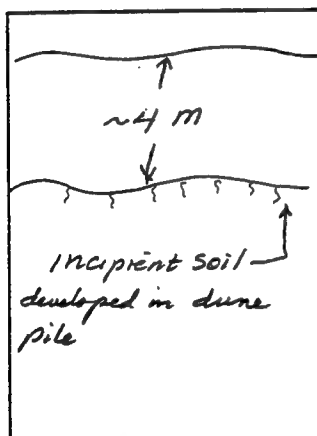 ~4 m
Incipient soil
developed in dune
pile